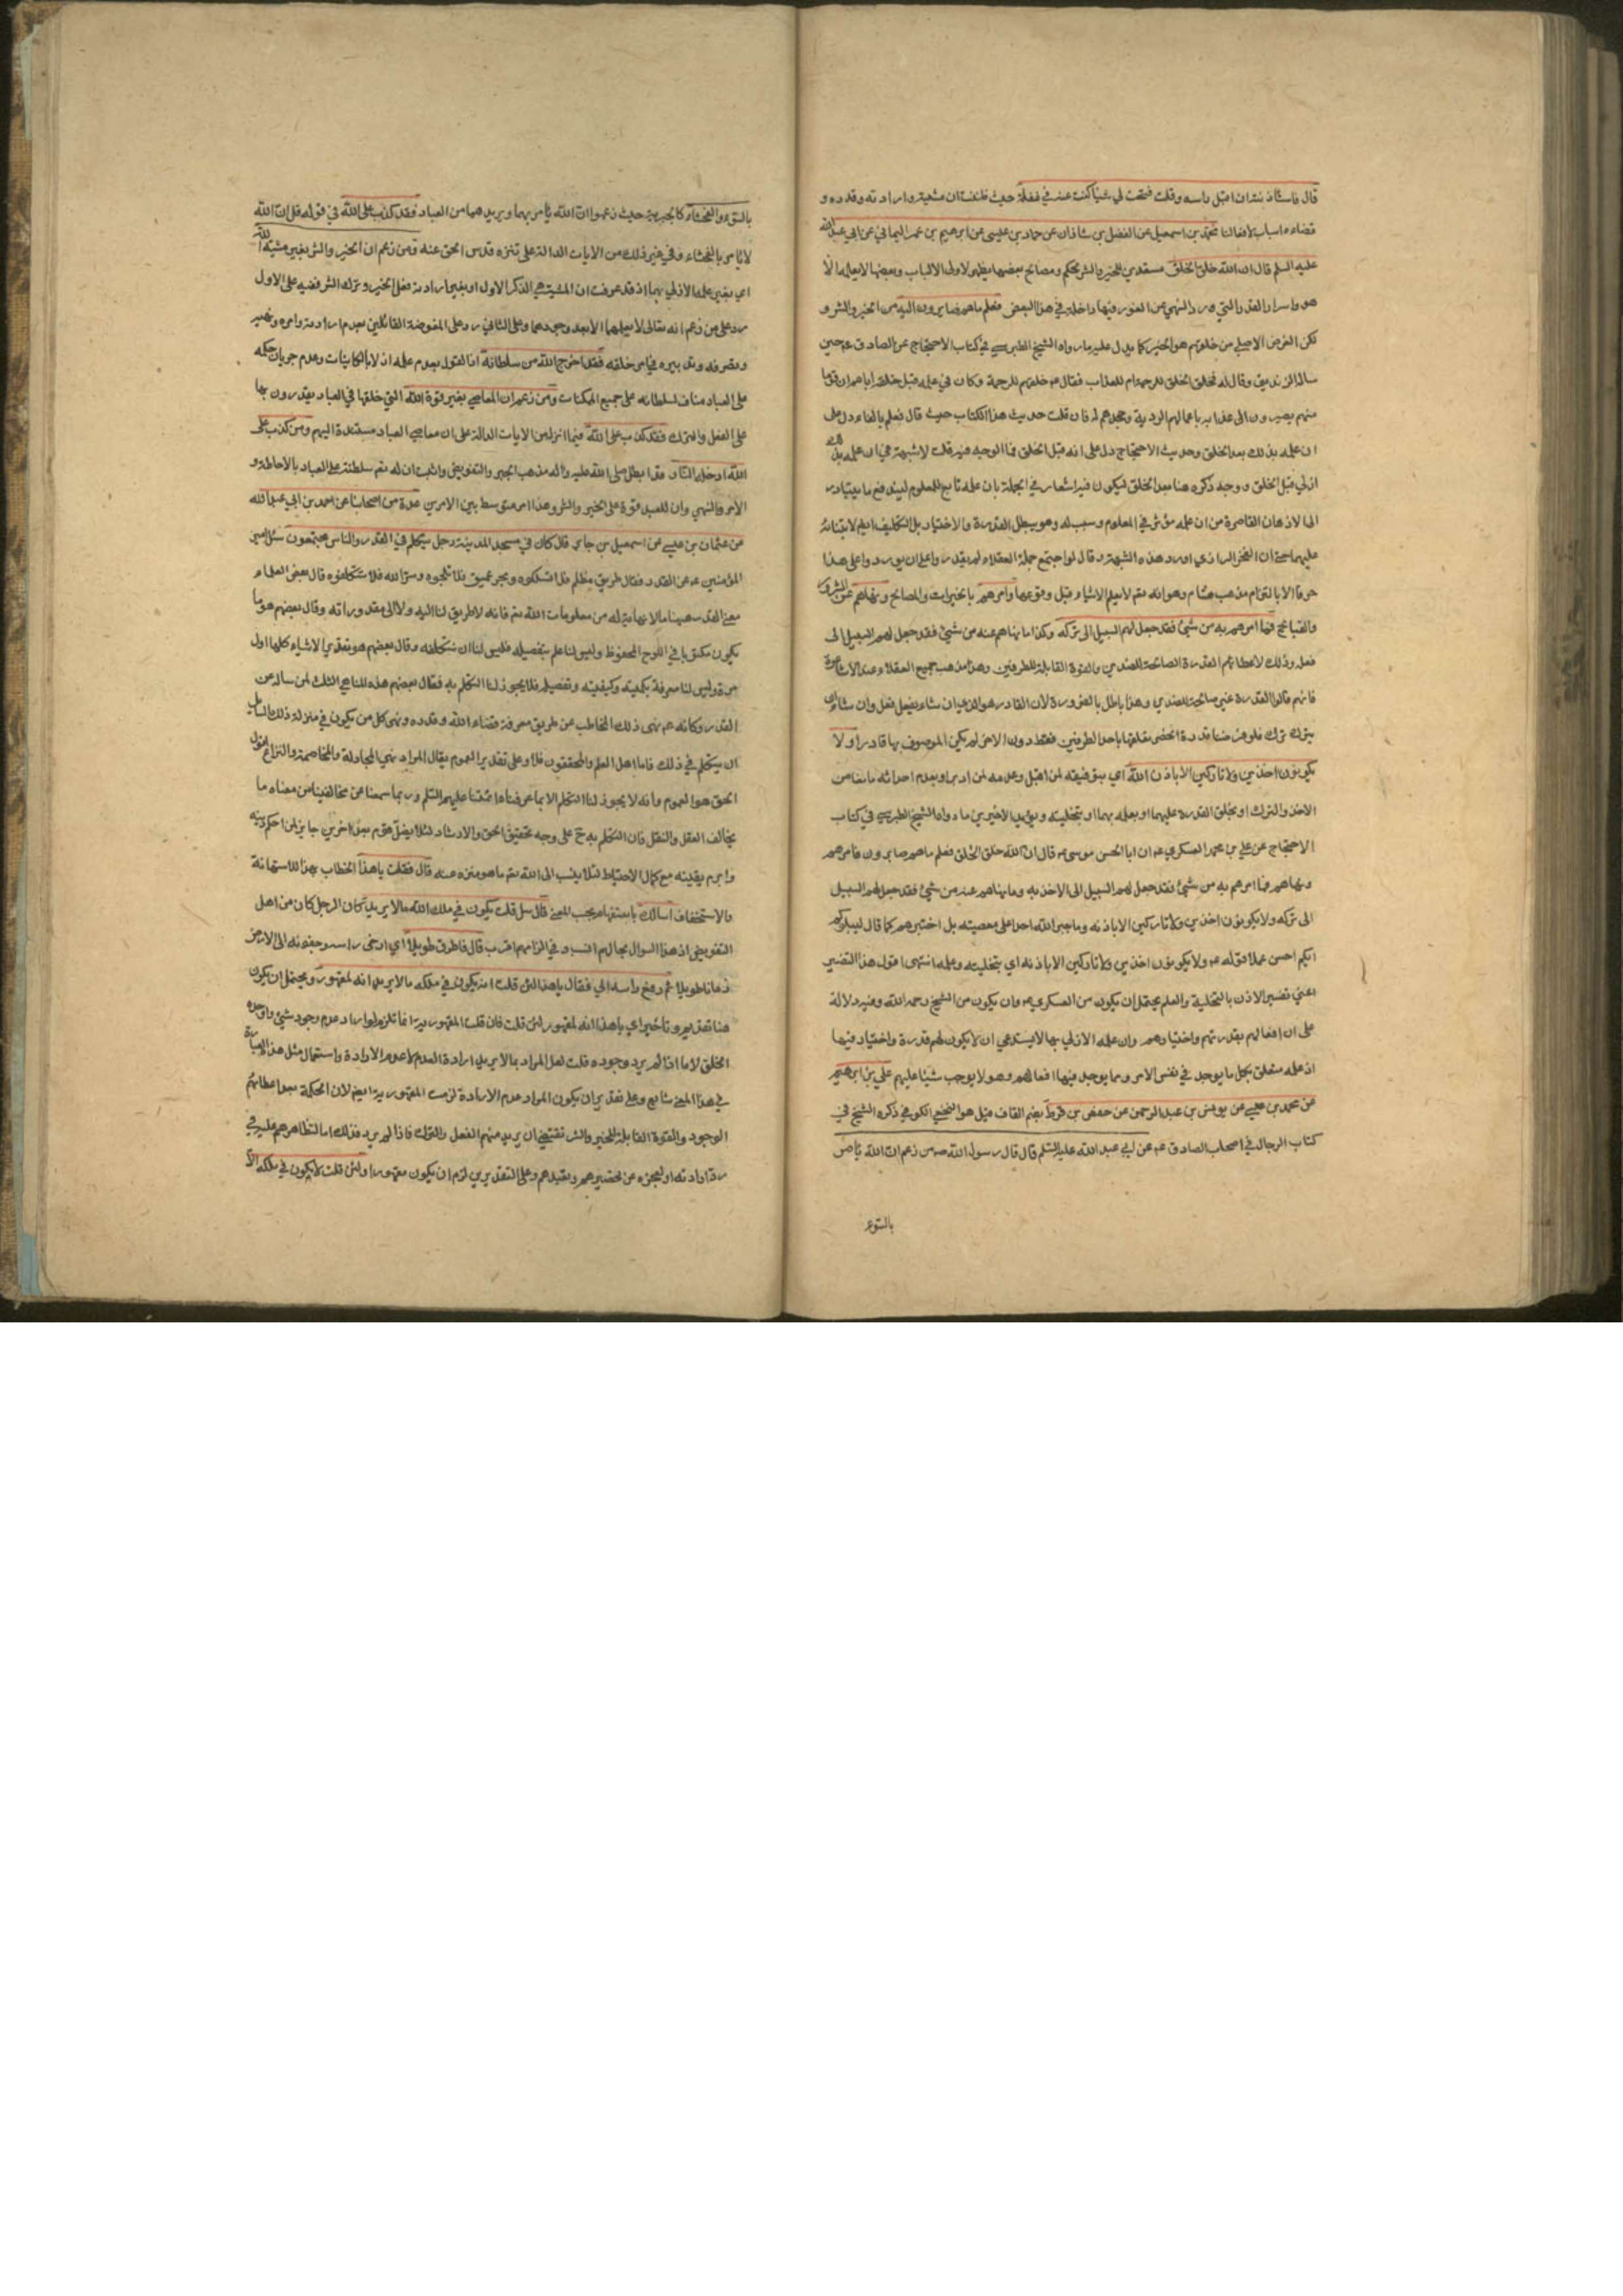 قال فاستأذنته ان اقبل راسه وقلت فتحت لي شيئا كنت عنه في غفلة حيث ظننت ان مشيته وارادته وقدره و
قضاءه اسباب لافعالنا محمد بن اسمعيل عن الفضل بن شاذان عن حماد بن عيسى عن ابرهيم بن عمر اليماني عن ابي عبد الله
عليه السلم قال ان الله خلق الخلق مستعدين للخير والشر لحكم ومصالح بعضها يظهر لاولى الالباب وبعضها لا يعلمه الا
هو واسرار القدر التي ورد النهي عن الغور فيها داخلة في هذا البعض فعلم ما هم صايرون اليه من الخير والشر و
لكن الغرض الاصلي من خلقهم هو الخير كما يدل عليه ما رواه الشيخ الطبرسي في كتاب الاحتجاج عن الصادق عم حين
ساله الزنديق وقال له فخلق الخلق للرحمة ام للعذاب فقال عم خلقهم للرحمة وكان في علمه قبل خلقه اياهم ان قوما
منهم يصيرون الى عذابه باعمالهم الردية وجحدهم له فان قلت حديث هذا الكتاب حيث قال فعلم بالفاء دل على
ان علمه بذلك بعد الخلق وحديث الاحتجاج دل على انه قبل الخلق فما الوجه فيه قلت لا شبهة في ان علمه بذلك
ازلي قبل الخلق ووجه ذكره هنا بعد الخلق ليكون فيه اشعار في الجملة بان علمه تابع للمعلوم ليندفع ما يتبادر
الى الاذهان القاصرة من ان علمه مؤثر في المعلوم وسبب له وهو يبطل القدرة والاختيار بل التكليف ايضا لابتنائه
عليهما حتى ان الفخر الرازي اورد هذه الشبهة وقال لو اجتمع جملة العقلاء لم يقدروا على ان يوردوا على هذا
حرفا الا بالتزام مذهب هشام وهو انه تعم لا يعلم الاشياء قبل وقوعها وامرهم بالخيرات والمصالح ونهاهم عن الشرور
والقبايح فما امرهم به من شئ فقد جعل لهم السبيل الى تركه وكذا ما نهاهم عنه من شئ فقد جعل لهم السبيل الى
فعله وذلك لاعطائهم القدرة الصالحة للضدين والقوة القابلة للطرفين وهذا مذهب جميع العقلاء عدا الاشاعرة
فانهم قالوا القدرة غير صالحة للضدين وهذا باطل بالضرورة لان القادر هو الذي ان شاء يفعل فعل وان شاء ان
يترك ترك فلو فرضنا قدرة اختص تعلقها باحد الطرفين فقط دون الاخر لم يكن الموصوف بها قادرا ولا
يكونون اخذين ولا تاركين الا باذن الله اي بتوفيقه لمن اقبل وعدمه لمن ادبر او بعدم احداثه مانعا من
الاخذ والترك او بخلق القدرة عليهما او بعلمه بهما او بتخليته ويؤيد الاخيرين ما رواه الشيخ الطبرسي في كتاب
الاحتجاج عن علي بن محمد العسكري عم ان ابا الحسن موسى عم قال ان الله خلق الخلق فعلم ما هم صايرون فامرهم
ونهاهم فما امرهم به من شئ فقد جعل لهم السبيل الى الاخذ به وما نهاهم عنه من شئ فقد جعل لهم السبيل
الى تركه ولا يكونون اخذين ولا تاركين الا باذنه وما جبر الله احدا على معصيته بل اختبرهم كما قال ليبلوكم
ايكم احسن عملا قوله عم ولا يكونون اخذين ولا تاركين الا باذنه اي بتخليته وعلمه انتهى اقول هذا التفسير
اعني تفسير الاذن بالتخلية والعلم يحتمل ان يكون من العسكري عم وان يكون من الشيخ رحمه الله وفيه دلالة
على ان افعالهم بقدرتهم واختيارهم وان علمه الازلي بها لا يستدعي ان لا يكون لهم قدرة واختيار فيها
اذ علمه متعلق بكل ما يوجد في نفس الامر ومما يوجد فيها افعالهم وهو لا يوجب شيئا عليهم علي بن ابرهيم
عن محمد بن عيسى عن يونس بن عبد الرحمن عن حفص بن قرط بضم القاف قيل هو النخعي الكوفي ذكره الشيخ في
كتاب الرجال في اصحاب الصادق عم عن ابي عبد الله عليه السلم قال قال رسول الله صم من زعم ان الله يأمر
بالسوء
بالسوء والفحشاء كالجبرية حيث زعموا ان الله يأمر بهما ويريدهما من العباد فقد كذب على الله في قوله قل ان الله
لا يأمر بالفحشاء وفي غير ذلك من الايات الدالة على تنزه قدس الحق عنه ومن زعم ان الخير والشر بغير مشية الله
اي بغير علمه الازلي بهما اذ قد عرفت ان المشية هي الذكر الاول او بغير ارادته فعل الخير وترك الشر ففيه على الاول
رد على من زعم انه تعالى لا يعلمها الا بعد وجودهما وعلى الثاني رد على المفوضة القائلين بعدم ارادته وامره ونهيه
وتصرفه وتدبيره في امر خلقه فقد اخرج الله من سلطانه اذ القول بعدم علمه ازلا بالكاينات وعدم جريان حكمه
على العباد مناف لسلطانه على جميع الممكنات ومن زعم ان المعاصي بغير قوة الله التي خلقها في العباد يقدرون بها
على الفعل والترك فقد كذب على الله فيما انزله من الايات الدالة على ان معاصي العباد مستندة اليهم ومن كذب على
الله ادخله النار فقد ابطل صلى الله عليه واله مذهب الجبر والتفويض واثبت ان له تعم سلطنة على العباد بالاحاطة و
الامر والنهي وان للعبد قوة على الخير والشر وهذا امر متوسط بين الامرين عدة من اصحابنا عن احمد بن ابي عبد الله
عن عثمان بن عيسى عن اسمعيل بن جابر قال كان في مسجد المدينة رجل يتكلم في القدر والناس مجتمعون سئل امير
المؤمنين عم عن القدر فقال طريق مظلم فلا تسلكوه وبحر عميق فلا تلجوه وسر الله فلا تتكلفوه قال بعض العلماء
معنى القدر هيهنا ما لا نهاية له من معلومات الله تعم فانه لا طريق لنا اليه ولا الى مقدوراته وقال بعضهم هو ما
يكون مكتوبا في اللوح المحفوظ وليس لنا علم بتفصيله فليس لنا ان نتكلفه وقال بعضهم هو تقدير الاشياء كلها اول
مرة وليس لنا معرفة بكميته وكيفيته وتفصيله فلا يجوز لنا التكلم به فقال بعضهم هذه المناهي الثلث لمن ساله عن
القدر وكانه عم نهى ذلك المخاطب عن طريق معرفة قضاء الله وقدره ونهى كل من يكون في منزلة ذلك السايل
ان يتكلم في ذلك فاما اهل العلم والمحققون فلا وعلى تقدير العموم يقال المراد نهي المجادلة والمخاصمة والنزاع اقول
الحق هو العموم وانه لا يجوز لنا التكلم الا بما عرفناه ائمتنا عليهم السلم وربما سمعنا عن مخالفينا من معناه ما
يخالف العقل والنقل فان التكلم به ح على وجه تحقيق الحق والارشاد لئلا يضل قوم بعد اخرين جايز لمن احكم دينه
وابرم يقينه مع كمال الاحتياط لئلا ينسب الى الله تعم ما هو منزه عنه قال فقلت يا هذا الخطاب بهذا للاستهانة
والاستخفاف اسالك باستفهام يجب المعنى قال سل قلت يكون في ملك الله ما لا يريد كان الرجل كان من اهل
التفويض اذ هذا السوال بحالهم انسب وفي الزامهم اقرب قال فاطرق طويلا اي ارخى راسه وجفونه الى الارض
زمانا طويلا ثم رفع راسه الي فقال يا هذا لئن قلت انه يكون في ملكه ما لا يريد انه لمقهور ويحتمل ان يكون
هنا تقديم وتأخير اي يا هذا انه لمقهور لئن قلت فان قلت المقهورية انما تلزم لو اراد عدم وجود شئ واوجده
الخلق لا ما اذا لم يرد وجوده قلت لعل المراد بما لا يريد ارادة العدم لا عدم الارادة واستعمال مثل هذه العبارة
في هذا المعنى شايع وعلى تقدير ان يكون المراد عدم الارادة لزمت المقهورية ايضا لان الحكمة بعد اعطائهم
الوجود والقوة القابلة للخير والشر تقتضي ان يريد منهم الفعل والترك فاذا لم يرد فذلك اما لتظاهرهم عليه في
رد ارادته او لعجزه عن تحضيرهم وتعبدهم وعلى التقديرين لزم ان يكون مقهورا ولئن قلت لا يكون في ملكه الا